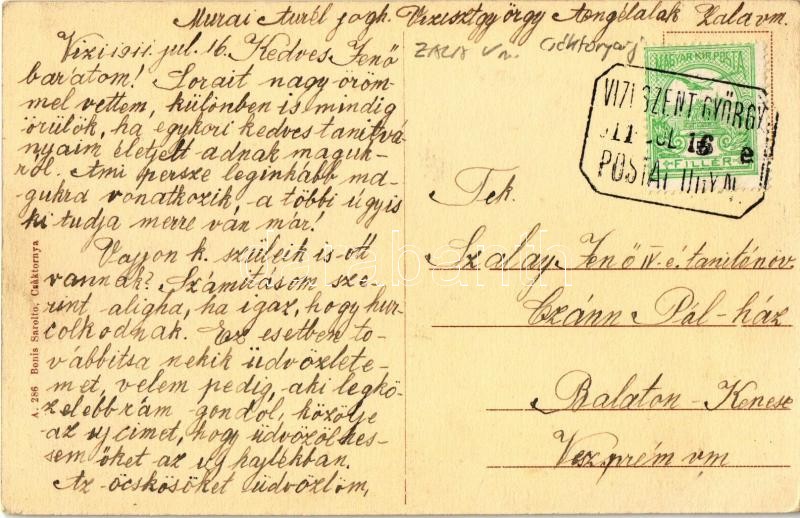 Murai Aurél jogh. Vizisztgyörgy Angélalak Zala vm.
ZALA Vm. Csáktornya
Vizi 1911. jul. 16. Kedves Jenő
barátom! Sorait nagy öröm-
mel vettem, különben is mindig
örülök, ha egykori kedves tanitvá-
nyaim életjelt adnak maguk-
ról. Ami persze leginkább ma-
gukra vonatkozik, a többi úgyis
ki tudja merre ván már!
Vajjon k. szüleik is ott
vannak? Számitásom sze-
rint aligha, ha igaz, hogy hur-
colkodnak. Ez esetben to-
vábbitsa nekik üdvözlete-
met, velem pedig, aki legkö-
zelebb rám gondol, közölje
az uj címet, hogy üdvözölhes-
sem őket az uj hajlékban.
Az öcskösöket üdvözlöm,
MAGYAR KIR. POSTA
FILLÉR
VIZI SZENT GYÖRGY
911 JUL 16 e
POSTAI ÜGYN.
Tek.
Szalay Jenő IV. é. tanitónöv.
Czánn Pál-ház
Balaton-Kenese
Veszprém vm
A. 286 Bonis Sarolto, Csáktornya
darabanth